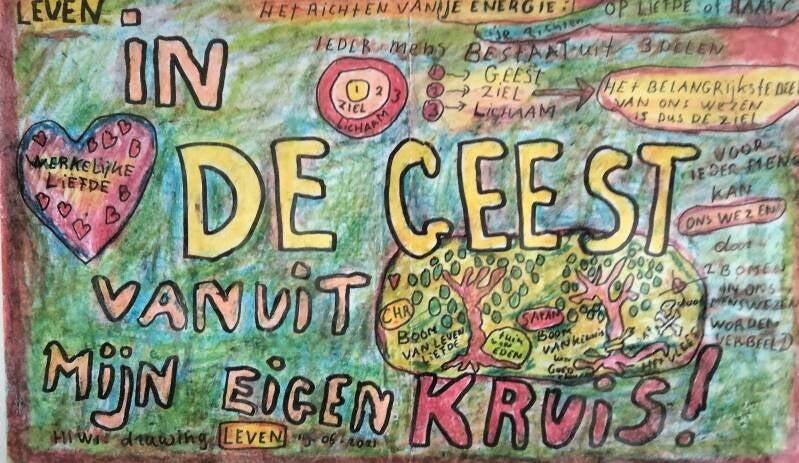 LEVEN
HET RICHTEN VAN JE ENERGIE: OP LIEFDE of HAAT?
je richten
IN
IEDER mens BESTAAT uit 3 DELEN
1 → GEEST
2 → ZIEL
3 → LICHAAM
1
ZIEL 2
LICHAAM 3
HET BELANGRIJKSTE DEEL
VAN ONS WEZEN
IS DUS DE ZIEL
WERKELIJKE
LIEFDE
DE GEEST
VOOR
IEDER MENS
KAN
ONS WEZEN
door
2 BOMEN
IN ONS
MENSWEZEN
WORDEN
VERBEELD
VANUIT
CHR
BOOM
VAN LEVEN
LIEFDE
tuin
van
EDEN
SATAN
BOOM
VAN KENNIS
van
GOED
HET VLEES
MIJN EIGEN KRUIS!
drawing LEVEN